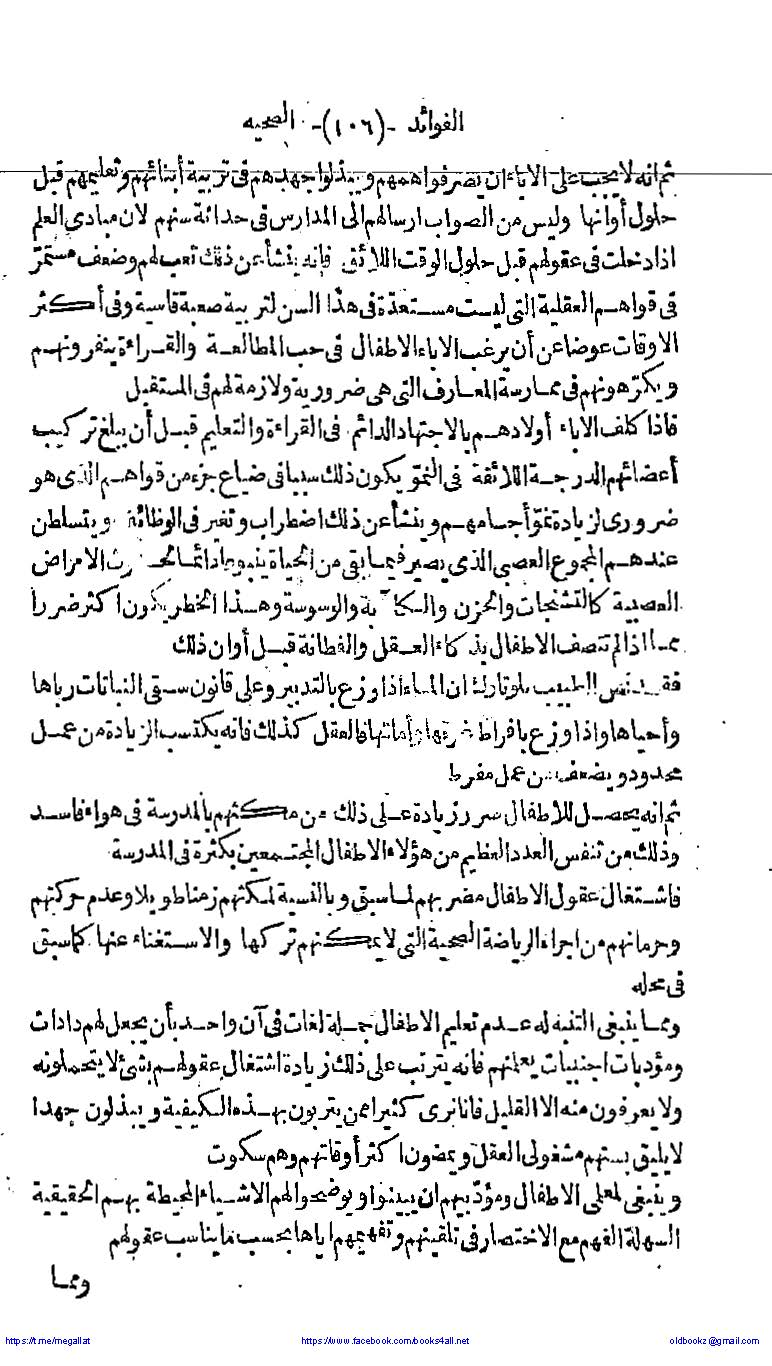 الفوائد -(١٠٦)- الصحيه
ثم انه لا يجب على الاباء ان يصرفوا همهم ويبذلوا جهدهم فى تربية أبنائهم وتعليمهم قبل
حلول أوانها وليس من الصواب ارسالهم الى المدارس فى حداثة سنهم لان مبادى العلم
اذا دخلت فى عقولهم قبل حلول الوقت اللائق فانه ينشأ عن ذلك تعب لهم وضعف مستمرّ
فى قواهم العقلية التى ليست مستعدّة فى هذا السن لتربية صعبة قاسية وفى أكثر
الاوقات عوضا عن أن يرغب الاباء الاطفال فى حب المطالعة والقراءة ينفرونهم
ويكرّهونهم فى ممارسة المعارف التى هى ضرورية ولازمة لهم فى المستقبل
فاذا كلف الاباء أولادهم بالاجتهاد الدائم فى القراءة والتعليم قبل أن يبلغ تركيب
أعضائهم الدرجة اللائقة فى النموّ يكون ذلك سببا فى ضياع جزء من قواهم الذى هو
ضرورى لزيادة نموّ أجسامهم وينشأ عن ذلك اضطراب وتغير فى الوظائف ويتسلطن
عندهم المجموع العصبى الذى يصير فيما بقى من الحياة ينبوعا دائما الامراض
العصبية كالتشنجات والحزن والكآبة والوسوسة وهذا الخطر يكون اكثر ضررا
مما اذا لم تتصف الاطفال بذكاء العقل والفطانة قبل أوان ذلك
فقد نص الطبيب بلوتارك ان الماء اذا وزع بالتدبير وعلى قانون سقى النباتات رباها
وأحياها واذا وزع بافراط غرقها وأماتها فالعقل كذلك فانه يكتسب الزيادة من عمل
محدود ويضعف من عمل مفرط
ثم انه يحصل للاطفال ضرر زيادة على ذلك من مكثهم بالمدرسة فى هواء فاسد
وذلك من تنفس العدد العظيم من هؤلاء الاطفال المجتمعين بكثرة فى المدرسة
فاشتغال عقول الاطفال مضر بهم لما سبق وبالنسبة لمكثهم زمنا طويلا وعدم حركتهم
وحرمانهم من اجراء الرياضة الصحية التى لا يمكنهم تركها والاستغناء عنها كما سبق
فى محله
ومما ينبغى التنبه له عدم تعليم الاطفال جملة لغات فى آن واحد بأن يجعل لهم دادات
ومؤدبات اجنبيات يعلمنهم فانه يترتب على ذلك زيادة اشتغال عقولهم بشئ لا يتحملونه
ولا يعرفون منه الا القليل فانا نرى كثيرا ممن يتربون بهذه الكيفية ويبذلون جهدا
لا يليق بسنهم مشغولى العقل ويمضون اكثر أوقاتهم وهم سكوت
وينبغى لمعلمى الاطفال ومؤدّبيهم ان يبينوا ويوضحوا لهم الاشياء المحيطة بهم الحقيقية
السهلة الفهم مع الاختصار فى تلقينهم وتفهيمهم اياها بحسب ما يناسب عقولهم
ومما
https://t.me/megallat
https://www.facebook.com/books4all.net
oldbookz@gmail.com